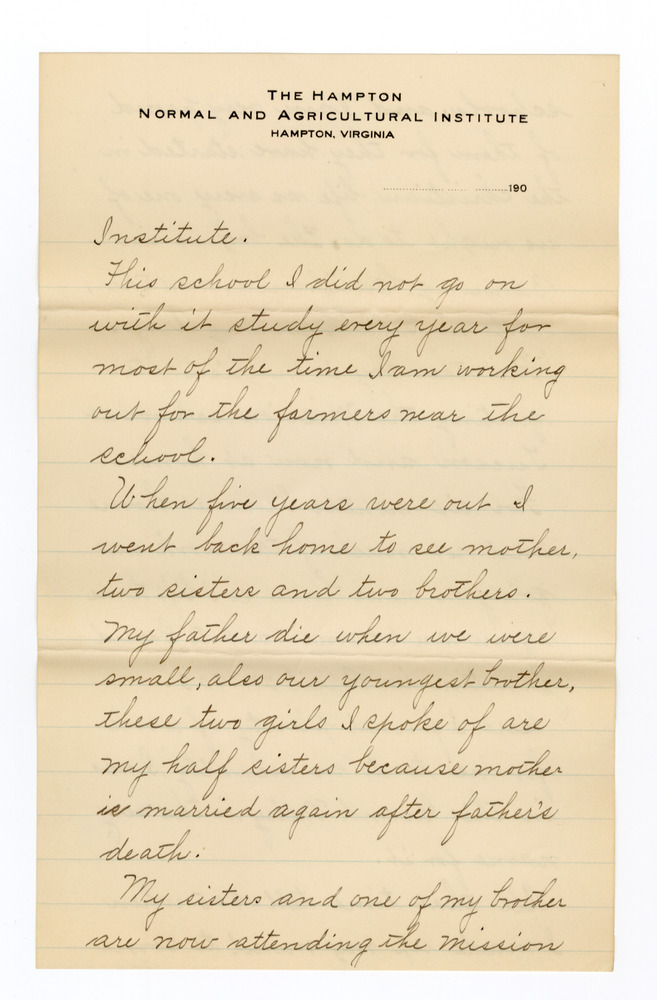 THE HAMPTON
NORMAL AND AGRICULTURAL INSTITUTE
HAMPTON, VIRGINIA
190
Institute.
This school I did not go on
with it study every year for
most of the time I am working
out for the farmers near the
school.
When five years were out I
went back home to see mother,
two sisters and two brothers.
My father die when we were
small, also our youngest brother,
these two girls I spoke of are
my half sisters because mother
is married again after father's
death.
My sisters and one of my brother
are now attending the mission